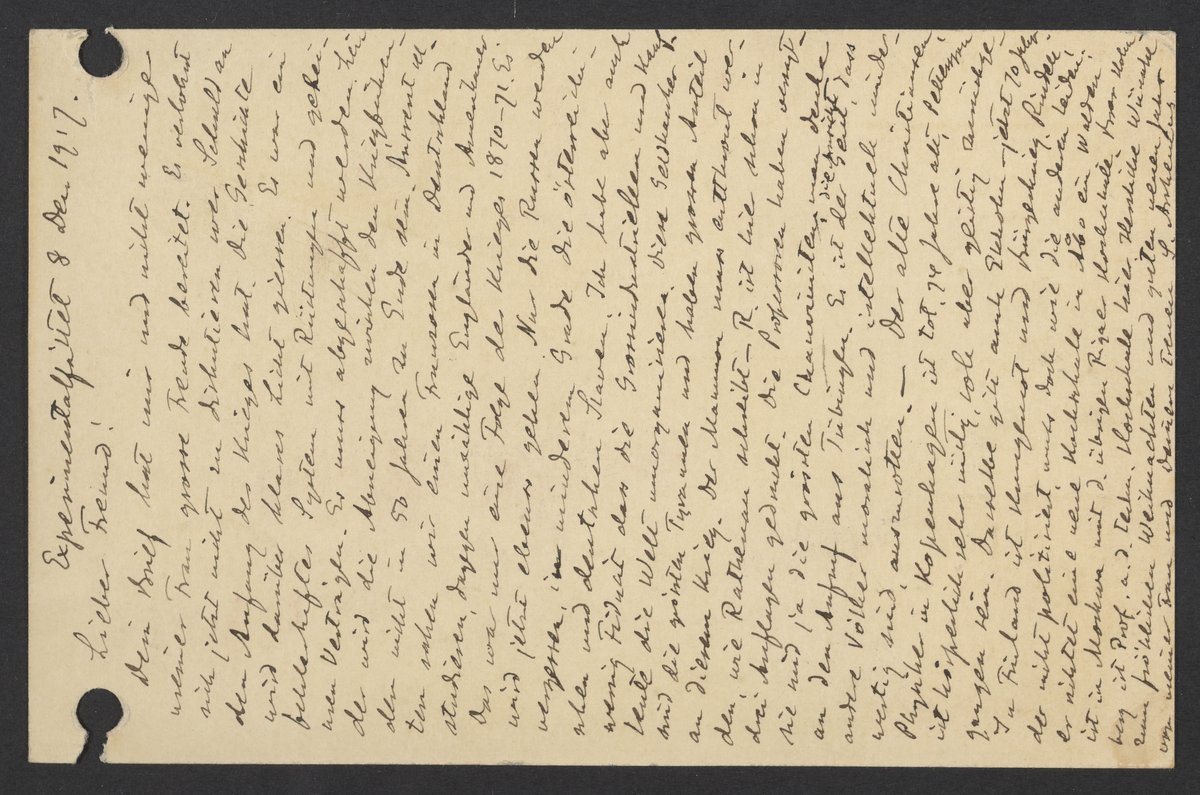 Experimentalfältet 8 Dez 1917.
Lieber Freund!
Dein Brief hat mir und nicht weniger
meiner Frau grosse Freude bereitet. Es verlohnt
sich jetzt nicht zu diskutieren wer Schuld an
dem Anfang des Krieges hat. Die Geschichte
wird darüber klares Licht giessen. Es war ein
fehlerhaftes System mit Rüstungen und
men Verträgen. Es muss abgeschafft werden,
der wird die Abneigung zwischen den Kriegführen-
den nicht in 50 Jahren zu Ende sein. Äusserst sel-
ten sahen wir einen Franzosen in Deutschland
studieren, dagegen unzählige Engländer und Amerikaner
Das war nur eine Folge des Krieges 1870-71. Es
wird jetzt ebenso gehen. Nur die Russen werden
vergessen, in minderem Grade die österreichi-
schen und deutschen Slaven. Ich habe aber auch
wenig Fiduciat dass die Grossindustriellen und
leute die Welt umorganisieren. Diese Geldmacher
sind die grössten Tyrannen und haben grossen Anteil
an diesem Krieg. Der Mammon muss entthront wer-
den, wie Rathenau schreibt – R ist hier schon in
drei Auflagen gedruckt. Die Professoren haben versagt
sie sind ja die grössten Chauvinisten, man denke
an den Aufruf aus Tübingen. Es ist der Geist, die Ansicht, dass
andere Völker moralisch und intellektuell minder-
wertig sind, auszurotten. — Der alte Christiansen,
Physiker in Kopenhagen ist tot, 74 Jahre alt, Pettersson
ist körperlich sehr rüstig, soll aber geistig
gangen sein. Dasselbe gilt auch Ekholm – jetzt 70 Jahre
In Finland ist Hungersnot und Bürgerkrieg,
der nicht politisiert muss doch wie die anderen leiden;
er richtet eine neue Hochschule in Åbo ein. Walden
ist in Moskwa mit d. übrigen Rigaer Hochschule.
berg ist Prof. a. d. Techn. Hochschule hier. Herzliche Wünsche
zum fröhlichen Weihnachten und guten neuen Jahr
von meiner Frau und Deinem treuen S. Arrhenius